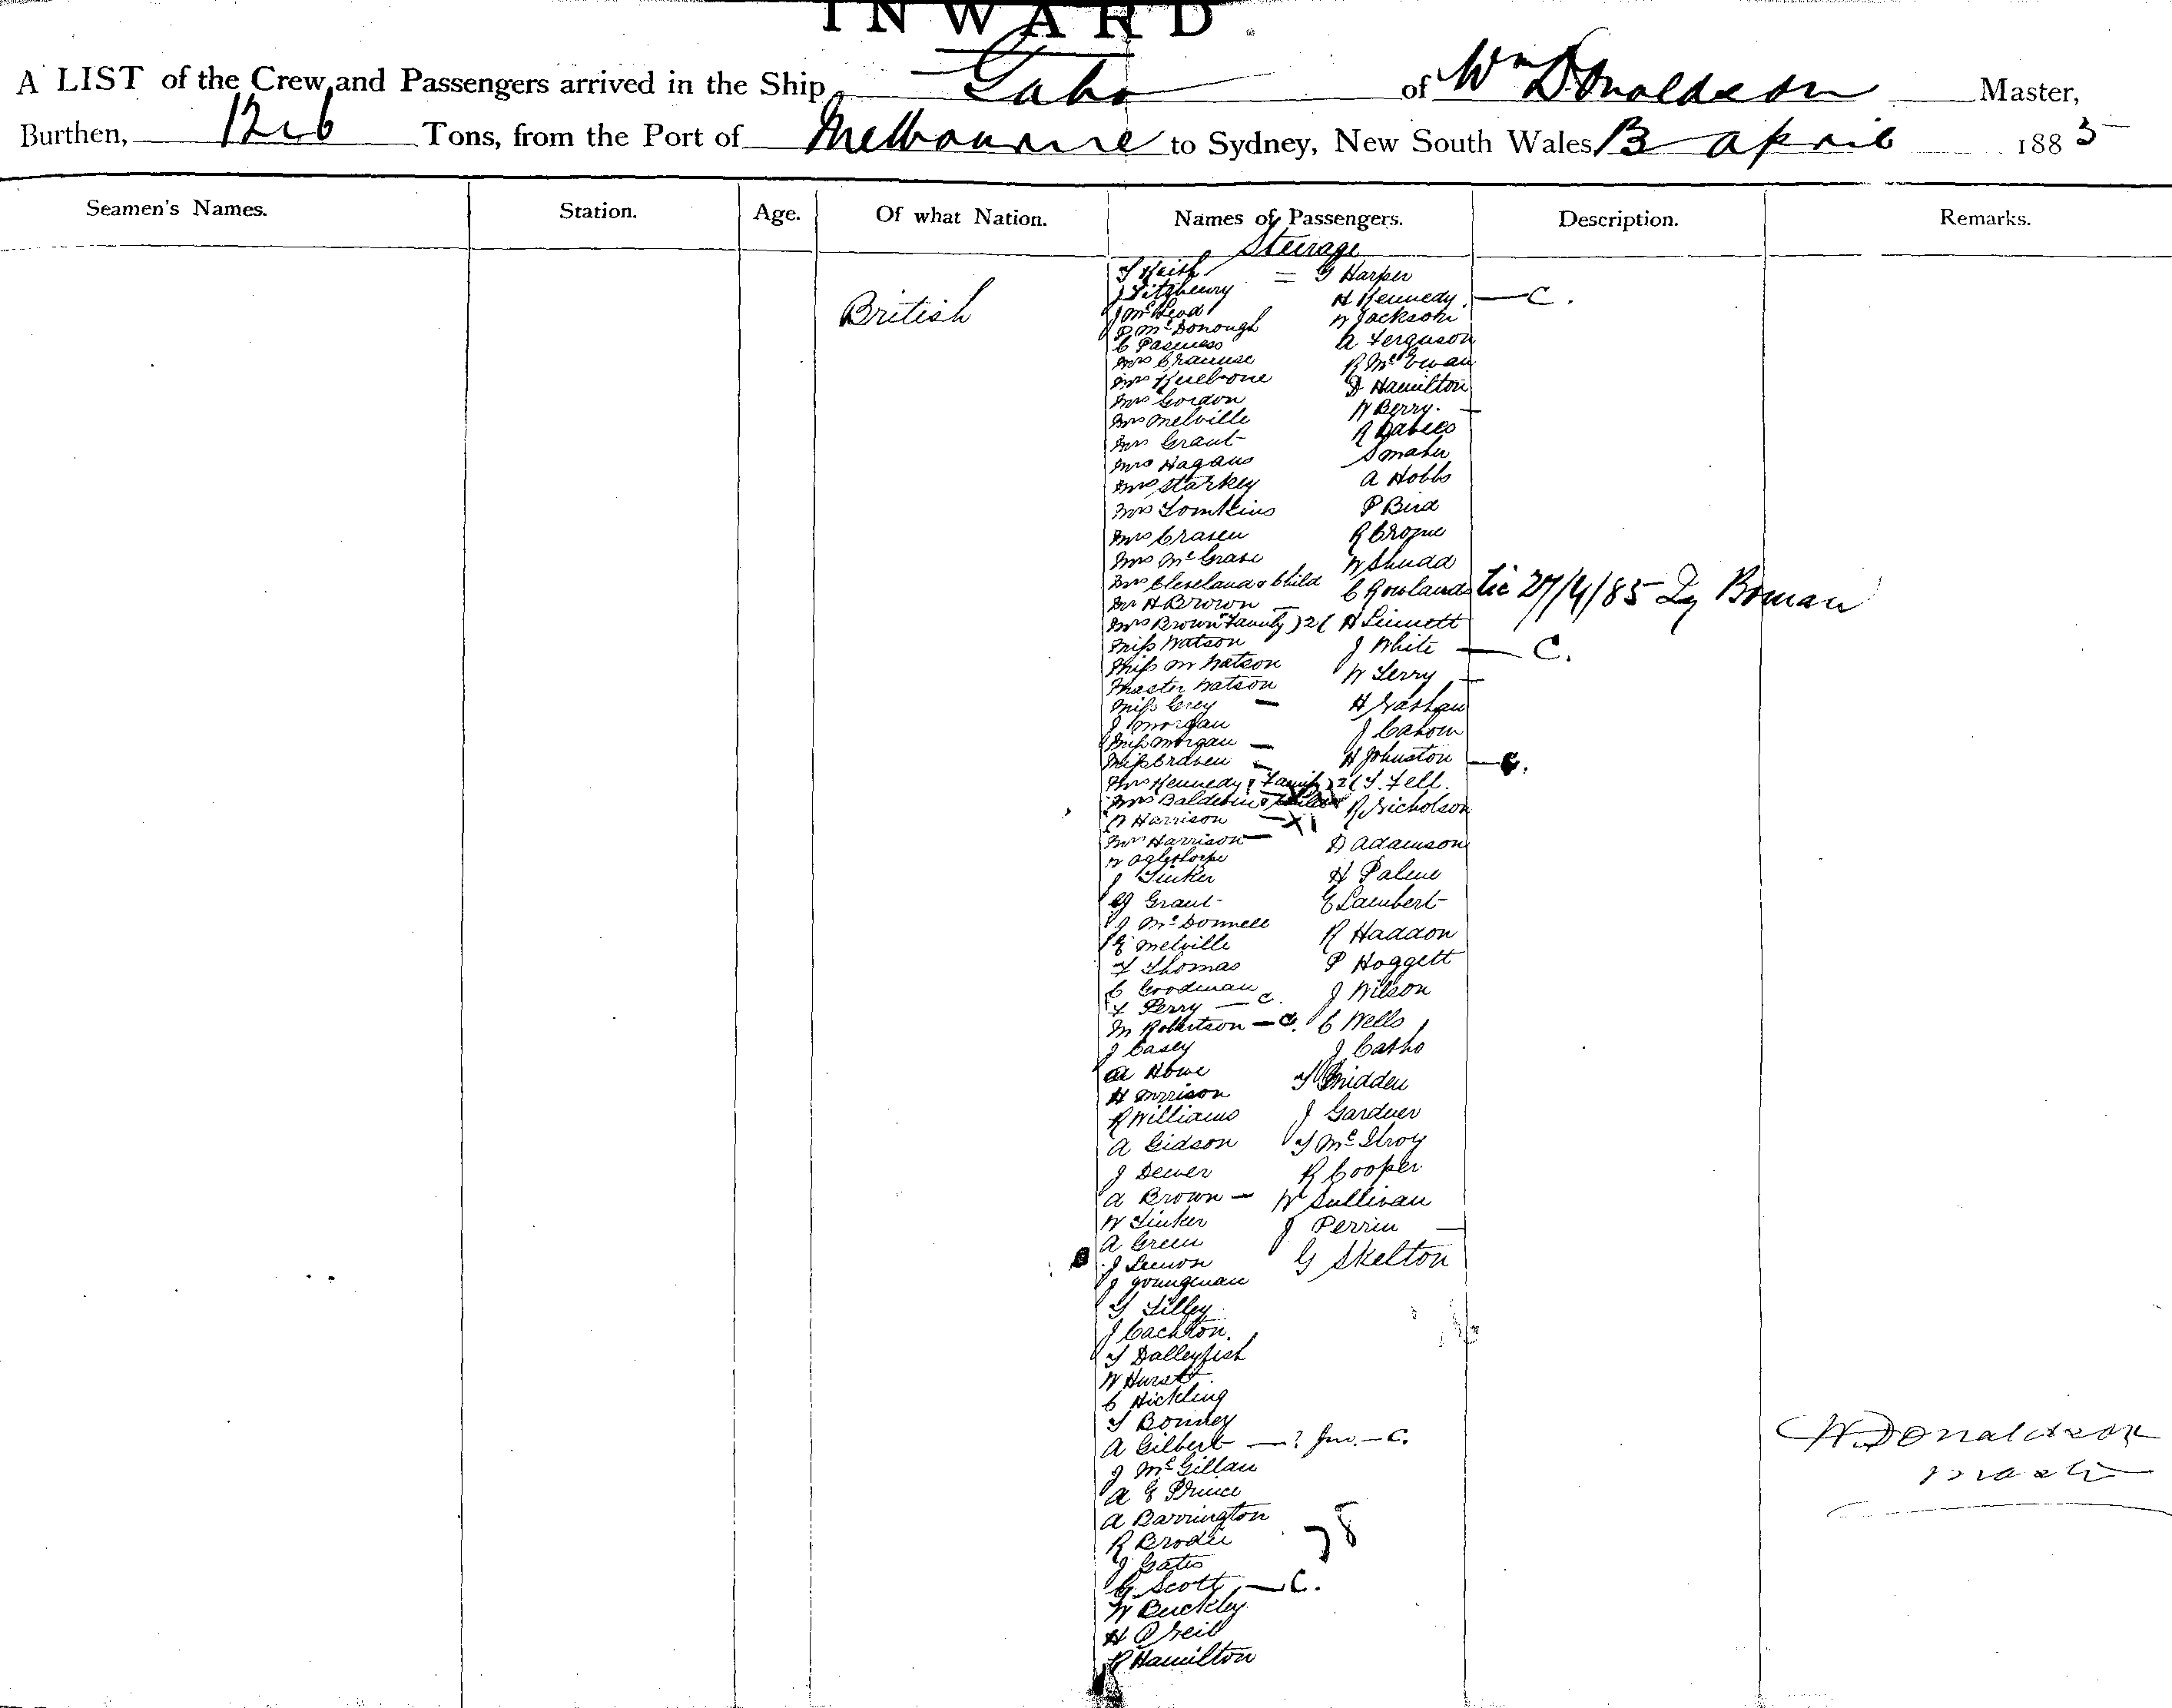 INWARD.
A LIST of the Crew and Passengers arrived in the Ship Gabo of Wm Donaldson Master,
Burthen, Tons, from the Port of Melbourne to Sydney, New South Wales 13 April 1885
Seamen's Names. Station. Age. Of what Nation. Names of Passengers. Description. Remarks.
Steerage
British
T Keith = G Harper
J Fitzhenry H Kennedy — C.
J McLeod W Jackson
P McDonough A Ferguson
C R McEwan
Mrs D Hamilton
Mrs W Berry.
Mrs Gordon R Davies
Mrs Melville Maher
Mrs Grant A Hobbs
Mrs Hagans P Bird
Mrs Starkey R
Mrs Tomkins W
Mrs Crasen C Rowlands Lic 27/4/85
Mrs H Linnett
Mrs Cleveland & Child J White — C.
Mr H Brown W Terry
Mrs Brown Family ) 2 ( H
Miss Watson J
Miss M Watson H Johnston — C.
Master Watson T. Fell.
Miss Grey — R Nicholson
J Morgan D Adamson
Miss Morgan — H
Miss Craven E Lambert
Mrs Kennedy & Family ) 2 ( R Haddon
Mrs Baldwin & P Hoggett
W Harrison J Wilson
Mrs Harrison — C Wells
W Oglethorpe J
J Tinker T
G Grant J Gardner
J McDonnell T McIlroy
E Melville R Cooper
F Thomas W Sullivan
C Goodman J Perrin
F Perry — C. G Skelton
M Robertson — C.
J Casey
A Howe
H Morrison
R Williams
A Gidson
J Dewer
A Brown —
W Tinker
A Green
J Lemon
J Youngman
G Tilley
J Cachton.
T Dalleyfish
W Hurst
C Hickling
T Bonney
A Gilbert — ? Jnr. — C.
J McGillan
A E Prince
A Barrington
R Brodie 78
J Gates
G Scott — C.
W Buckley
H O Neil
R Hamilton
W. Donaldson
Master